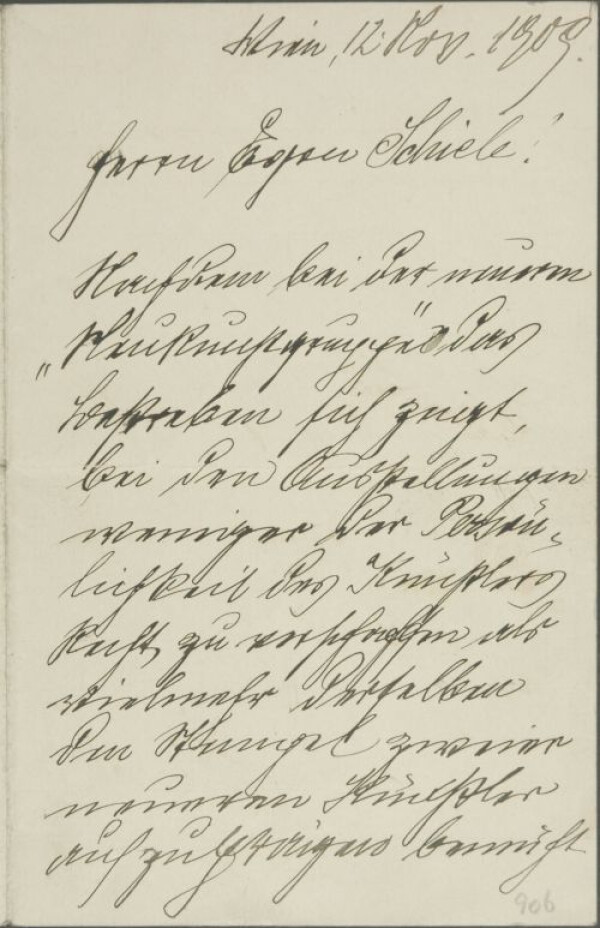 Wien, 12. Nov. 1909.
Herrn Egon Schiele!
Nachdem bei der neueren
„Neukunstgruppe" das
Bestreben sich zeigt,
bei den Ausstellungen
weniger der Persön-
lichkeit des Künstlers
Recht zu verschaffen als
vielmehr derselben
den Stempel zweier
neueren Künstler
aufzudrängen bemüht
906